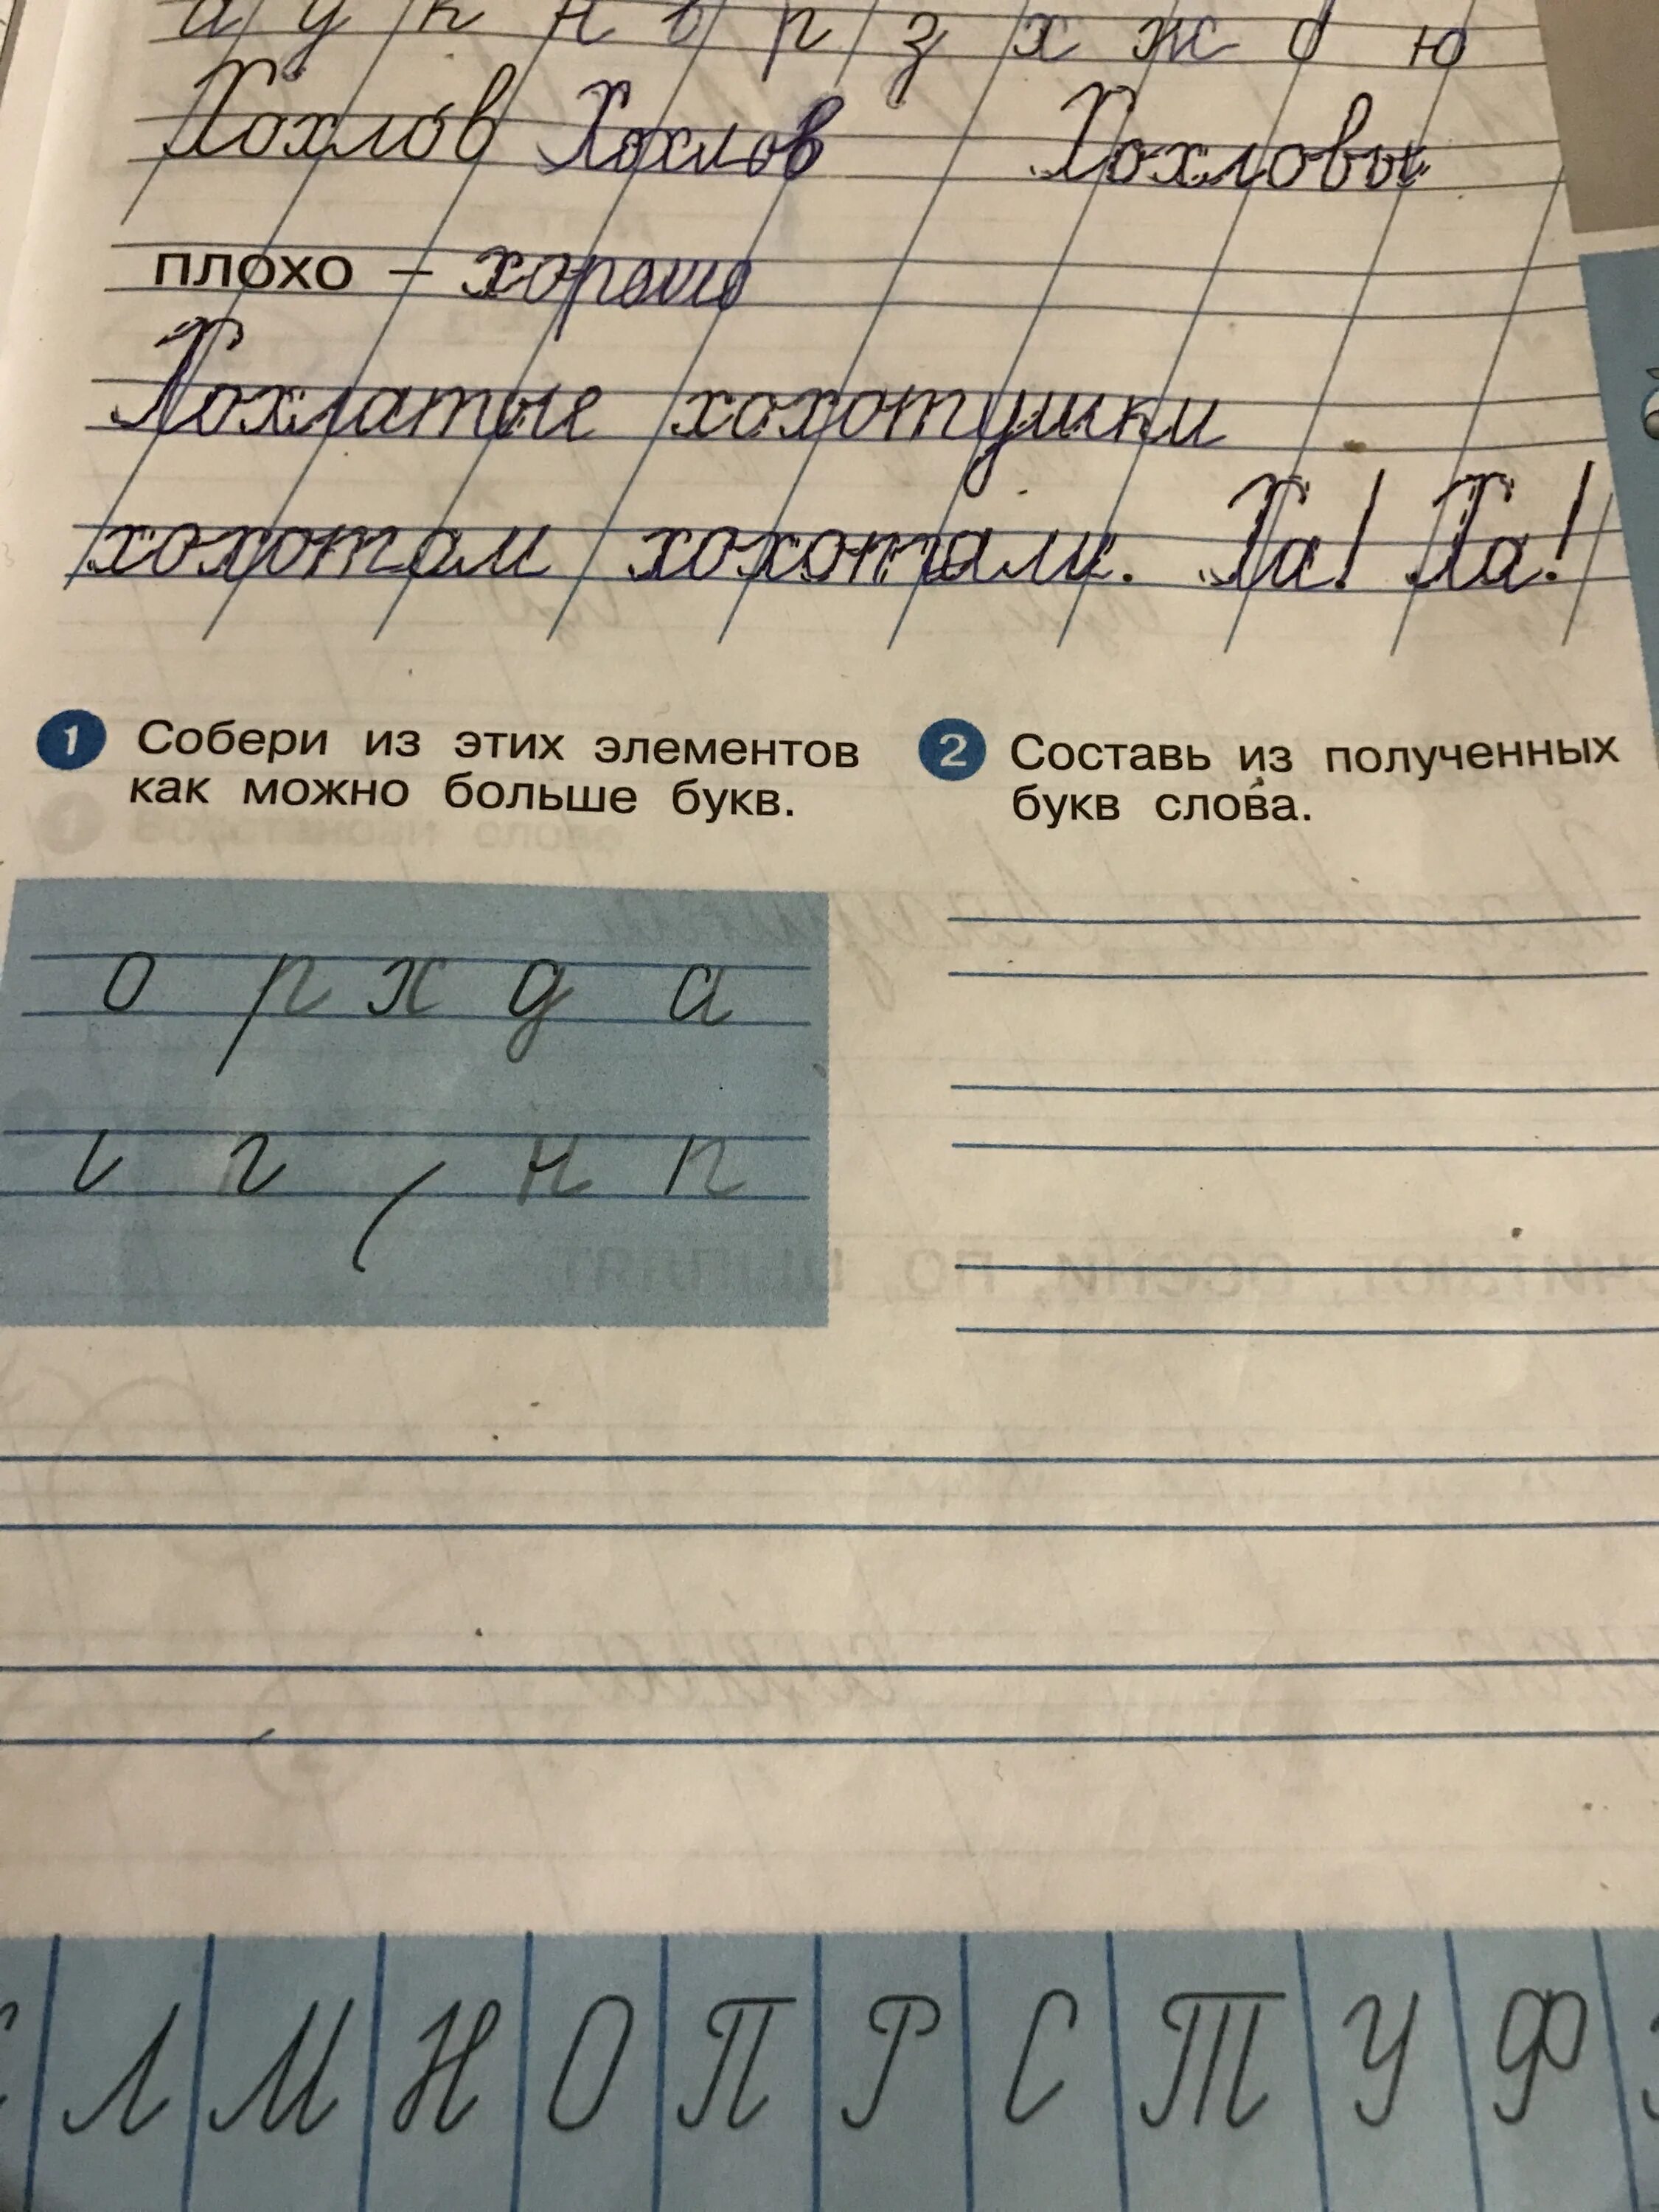 а у к н в р з х ж о ю
Хохлов Хохлов Хохловы
плохо – хорошо
Хохлатые хохотушки
хохотом хохотали. Ха! Ха!
1 Собери из этих элементов
как можно больше букв.
2 Составь из полученных
букв слова.
о р х д а
г н п
Л М Н О П Р С Т У Ф